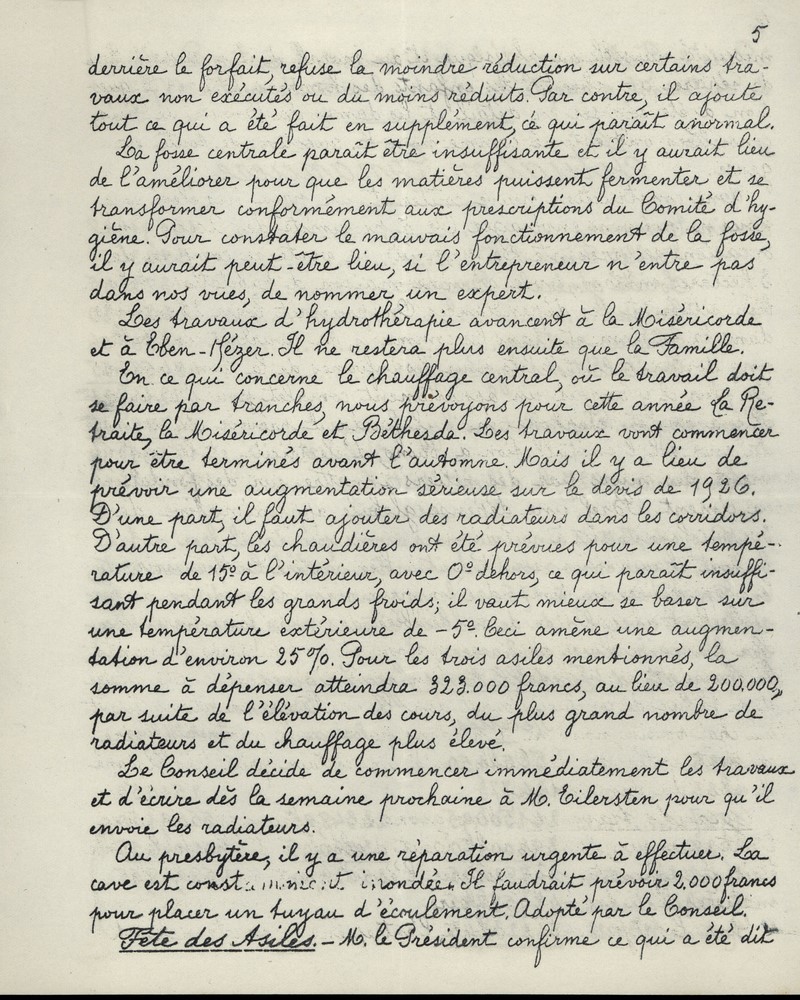 5
derrière le forfait, refuse la moindre réduction sur certains tra-
vaux non exécutés ou du moins réduits. Par contre, il ajoute
tout ce qui a été fait en supplément, ce qui paraît anormal.
La fosse centrale paraît être insuffisante et il y aurait lieu
de l'améliorer pour que les matières puissent fermenter et se
transformer conformément aux prescriptions du Comité d'hy-
giène. Pour constater le mauvais fonctionnement de la fosse,
il y aurait peut-être lieu, si l'entrepreneur n'entre pas
dans nos vues, de nommer un expert.
Les travaux d'hydrothérapie avancent à la Miséricorde
et à Eben-Hézer. Il ne restera plus ensuite que la Famille.
En ce qui concerne le chauffage central, où le travail doit
se faire par tranches, nous prévoyons pour cette année La Re-
traite, la Miséricorde et Béthesda. Les travaux vont commencer
pour être terminés avant l'automne. Mais il y a lieu de
prévoir une augmentation sérieuse sur le devis de 1926.
D'une part, il faut ajouter des radiateurs dans les corridors.
D'autre part, les chaudières ont été prévues pour une tempé-
rature de 15º à l'intérieur, avec 0º dehors, ce qui paraît insuffi-
sant pendant les grands froids; il vaut mieux se baser sur
une température extérieure de -5º. Ceci amène une augmen-
tation d'environ 25%. Pour les trois asiles mentionnés, la
somme à dépenser atteindra 323.000 francs, au lieu de 200.000,
par suite de l'élévation des cours, du plus grand nombre de
radiateurs et du chauffage plus élevé.
Le Conseil décide de commencer immédiatement les travaux
et d'écrire dès la semaine prochaine à M. Eilersten pour qu'il
envoie les radiateurs.
Au presbytère, il y a une réparation urgente à effectuer. La
cave est constamment inondée. Il faudrait prévoir 2.000 francs
pour placer un tuyau d'écoulement. Adopté par le Conseil.
Fête des Asiles. - M. le Président confirme ce qui a été dit